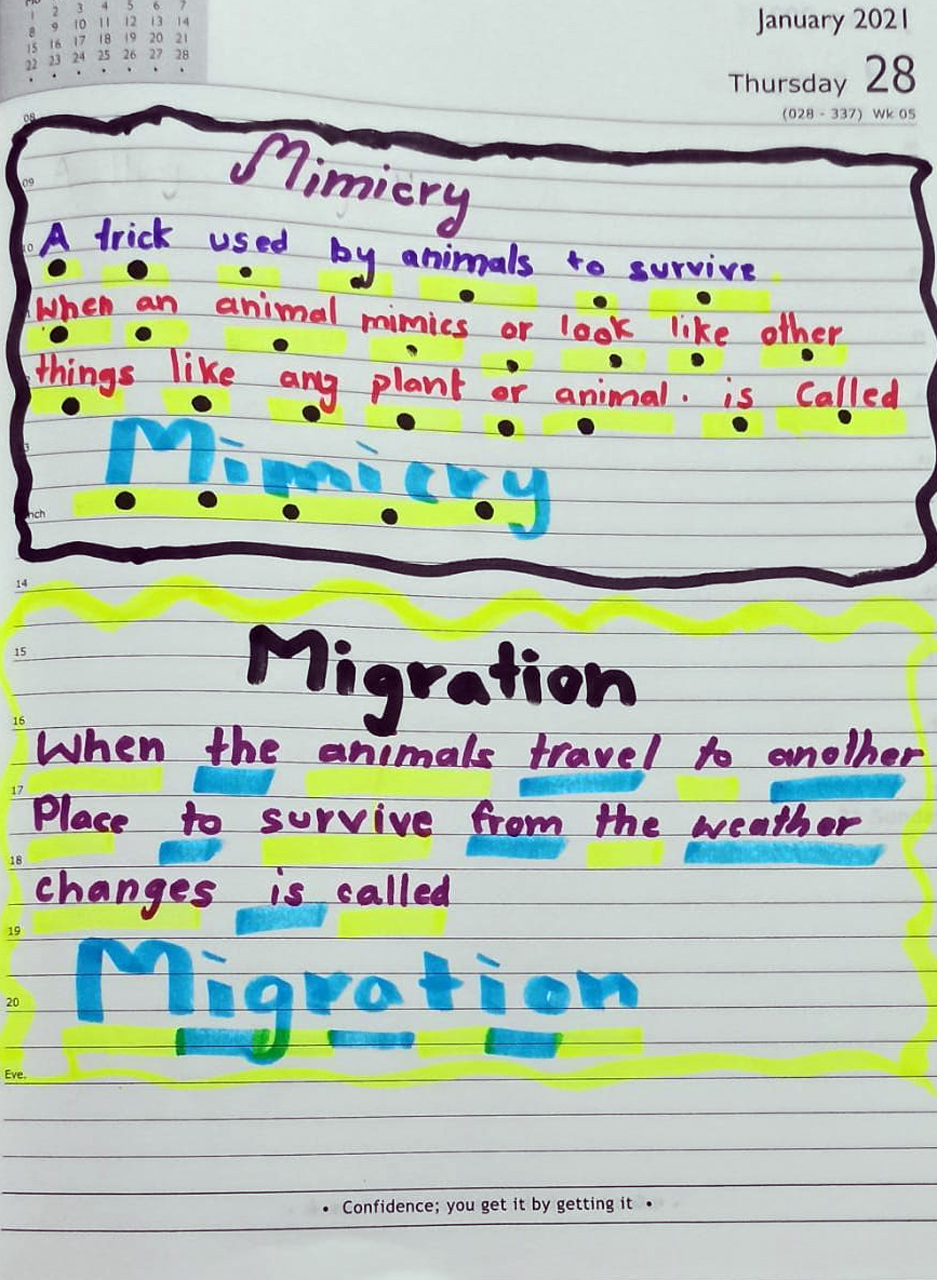 Mo
1 2 3 4 5 6 7
8 9 10 11 12 13 14
15 16 17 18 19 20 21
22 23 24 25 26 27 28
January 2021
Thursday 28
(028 - 337) Wk 05
08
Mimicry
09
10 A trick used by animals to survive
When an animal mimics or look like other
things like any plant or animal. is Called
Mimicry
nch
14
Migration
15
16
When the animals travel to another
17
Place to survive from the weather
18
changes is called
19
Migration
20
Eve.
• Confidence; you get it by getting it •